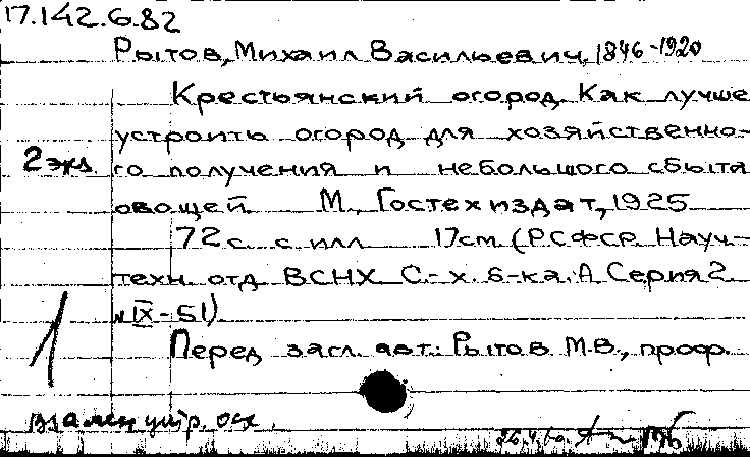 17.142.6.82
Рытов, Михаил Васильевич, 1846-1920
Крестьянский огород. Как лучше
устроить огород для хозяйственно-
2 экз. го получения и небольшого сбыта
овощей. М., Гостехиздат, 1925
72 с. с илл 17см. (РСФСР. Науч-
техн. отд ВСНХ. С.-х. б-ка. А Серия 2.
№IX-51)
Перед загл. авт.: Рытов М.В., проф.
1
взамен